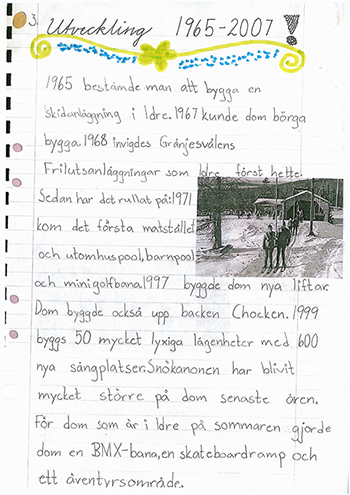 3. Utveckling 1965-2007 !
1965 bestämde man att bygga en
skidanläggning i Idre. 1967 kunde dom börga
bygga. 1968 invigdes Gränjesvålens
Frilutsanläggningar som Idre först hette.
Sedan har det rullat på: 1971
kom det första matstället
och utomhuspool, barnpool
och minigolfbana. 1997 byggde dom nya liftar.
Dom byggde också upp backen Chocken. 1999
byggs 50 mycket lyxiga lägenheter med 600
nya sängplatser. Snökanonen har blivit
mycket större på dom senaste åren.
För dom som är i Idre på sommaren gjorde
dom en BMX-bana, en skateboardramp och
ett äventyrsområde.